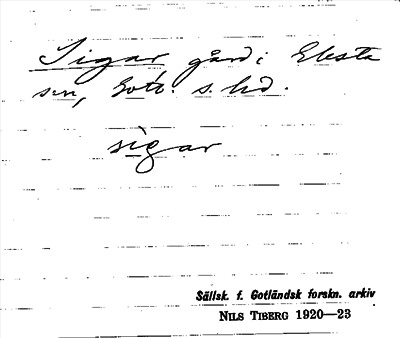 Sigar gård i Eksta
sn, Gotl. s. hd.
sìgar
Sällsk. f. Gotländsk forskn. arkiv
NILS TIBERG 1920—23